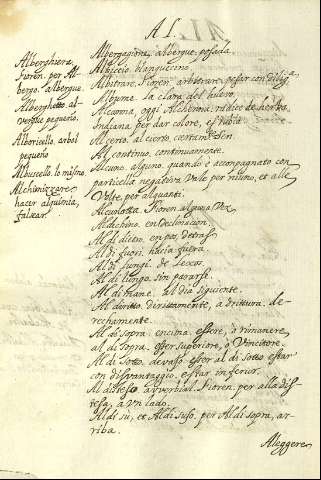 AL.
Alberghiera,
Fioren. per Al-
bergo. albergue.
Alberghetto. al-
vergue pequeño.
Alboricello, arbol
pequeño
Albuscello, lo mismo
Alchimizzare
hacer alquimia,
falsear
Albergagione, albergue, posada.
Albiccio, blanquecino.
Albitrare, Fioren. arbitrare, pesar con dilig.a
Albume, la clara del huevo.
Alcanna, oggi Alchenna, radice de hentos
Indiana, per dar colore, et
Al certo, al cierto, ciertam.te
Al continuo, continuamente.
Alcuno, alguno. quando è accompagnato con
particella negativa Vale per niuno, et alle
Volte, per alquanti.
Alcunotta, Fioren. alguna Vez
Aldichino, en declinacion.
Al di dietro, en pos, detras
Al di fuori, hacia fuera.
Al di lungi, de lexos.
Al di lungo, sin pararse.
Al dimane, al dia siguiente.
Al diritto, dirittamente, a drittura, de-
rechamente.
Al di sopra, encima essere, ò rimanere,
al di sopra, esser superiore, ò Vincitore.
Al di sotto, devaxo, esser al di sotto, estar
con disvantaggio, estar inferior.
Al disteso, adverbial. Fioren. per alla dis-
tesa, a un lado.
Al di sù, et Al di suso, per Al di sopra, ar-
riba.
Aleggere